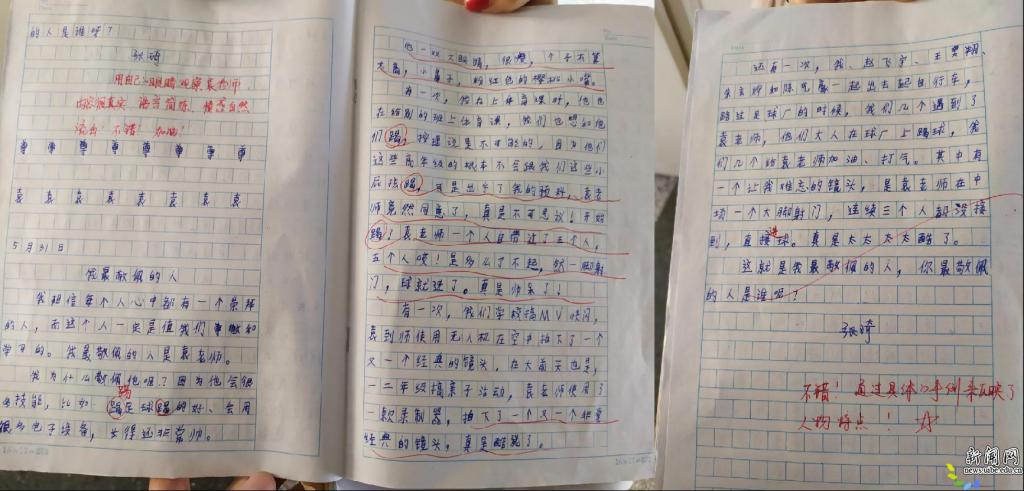 的人是谁呀？
张琦
用自己的眼睛观察袁老师
内容很真实、语言简练、情感自然
流出！不错！加油！
尊 尊 尊 尊 尊 尊 尊 尊
袁 袁 袁 袁 袁 袁 袁 袁
5月31日
我最敬佩的人
我相信每个人心中都有一个崇拜
的人，而这个人一定是值我们尊敬和
学习的。我最敬佩的人是袁老师。
我为什么敬佩他呢？因为他会很
多技能，比如：踢足球踢的好、会用
很多电子设备，长得还非常帅。
他一双大眼睛，很瘦，个子不算
太高，小鼻子，粉红色的樱桃小嘴。
有一次，我在上体育课时，他也
在给别的班上体育课，我们也想和他
们踢，按理说是不可能的，因为他们
这些高年级的根本不会跟我们这些小
屁孩踢，可是出乎了我的预料，袁老
师竟然同意了，真是不可思议！开始
踢了袁老师一个人自带过了五个人，
五个人噢！是多么了不起，就一脚射
门，球就进了。真是帅呆了！
有一次，我们学校搞MV快闪，
袁老师使用无人机在空中拍下了一个
又一个经典的镜头，在大前天也是，
一二年级搞亲子活动，袁老师使用了
一款录制器，拍下了一个又一个非常
经典的镜头，真是酷毙了。
还有一次，我、赵飞宇、王
一起出去起自行车，
路过足球广的时候，我们几个遇到了
袁老师，他们大人在球广上踢球，我
们几个给袁老师加油、打气。其中有
一个让我难忘的镜头，是袁老师在中
场一个大脚射门，连续三个人都没接
到，直接进球。真是太太太太酷了。
这就是我最敬佩的人，你最敬佩
的人是谁呢？
张琦
不错！通过具体的事例来反映了
人物特点！
新闻网
news.uibe.edu.cn